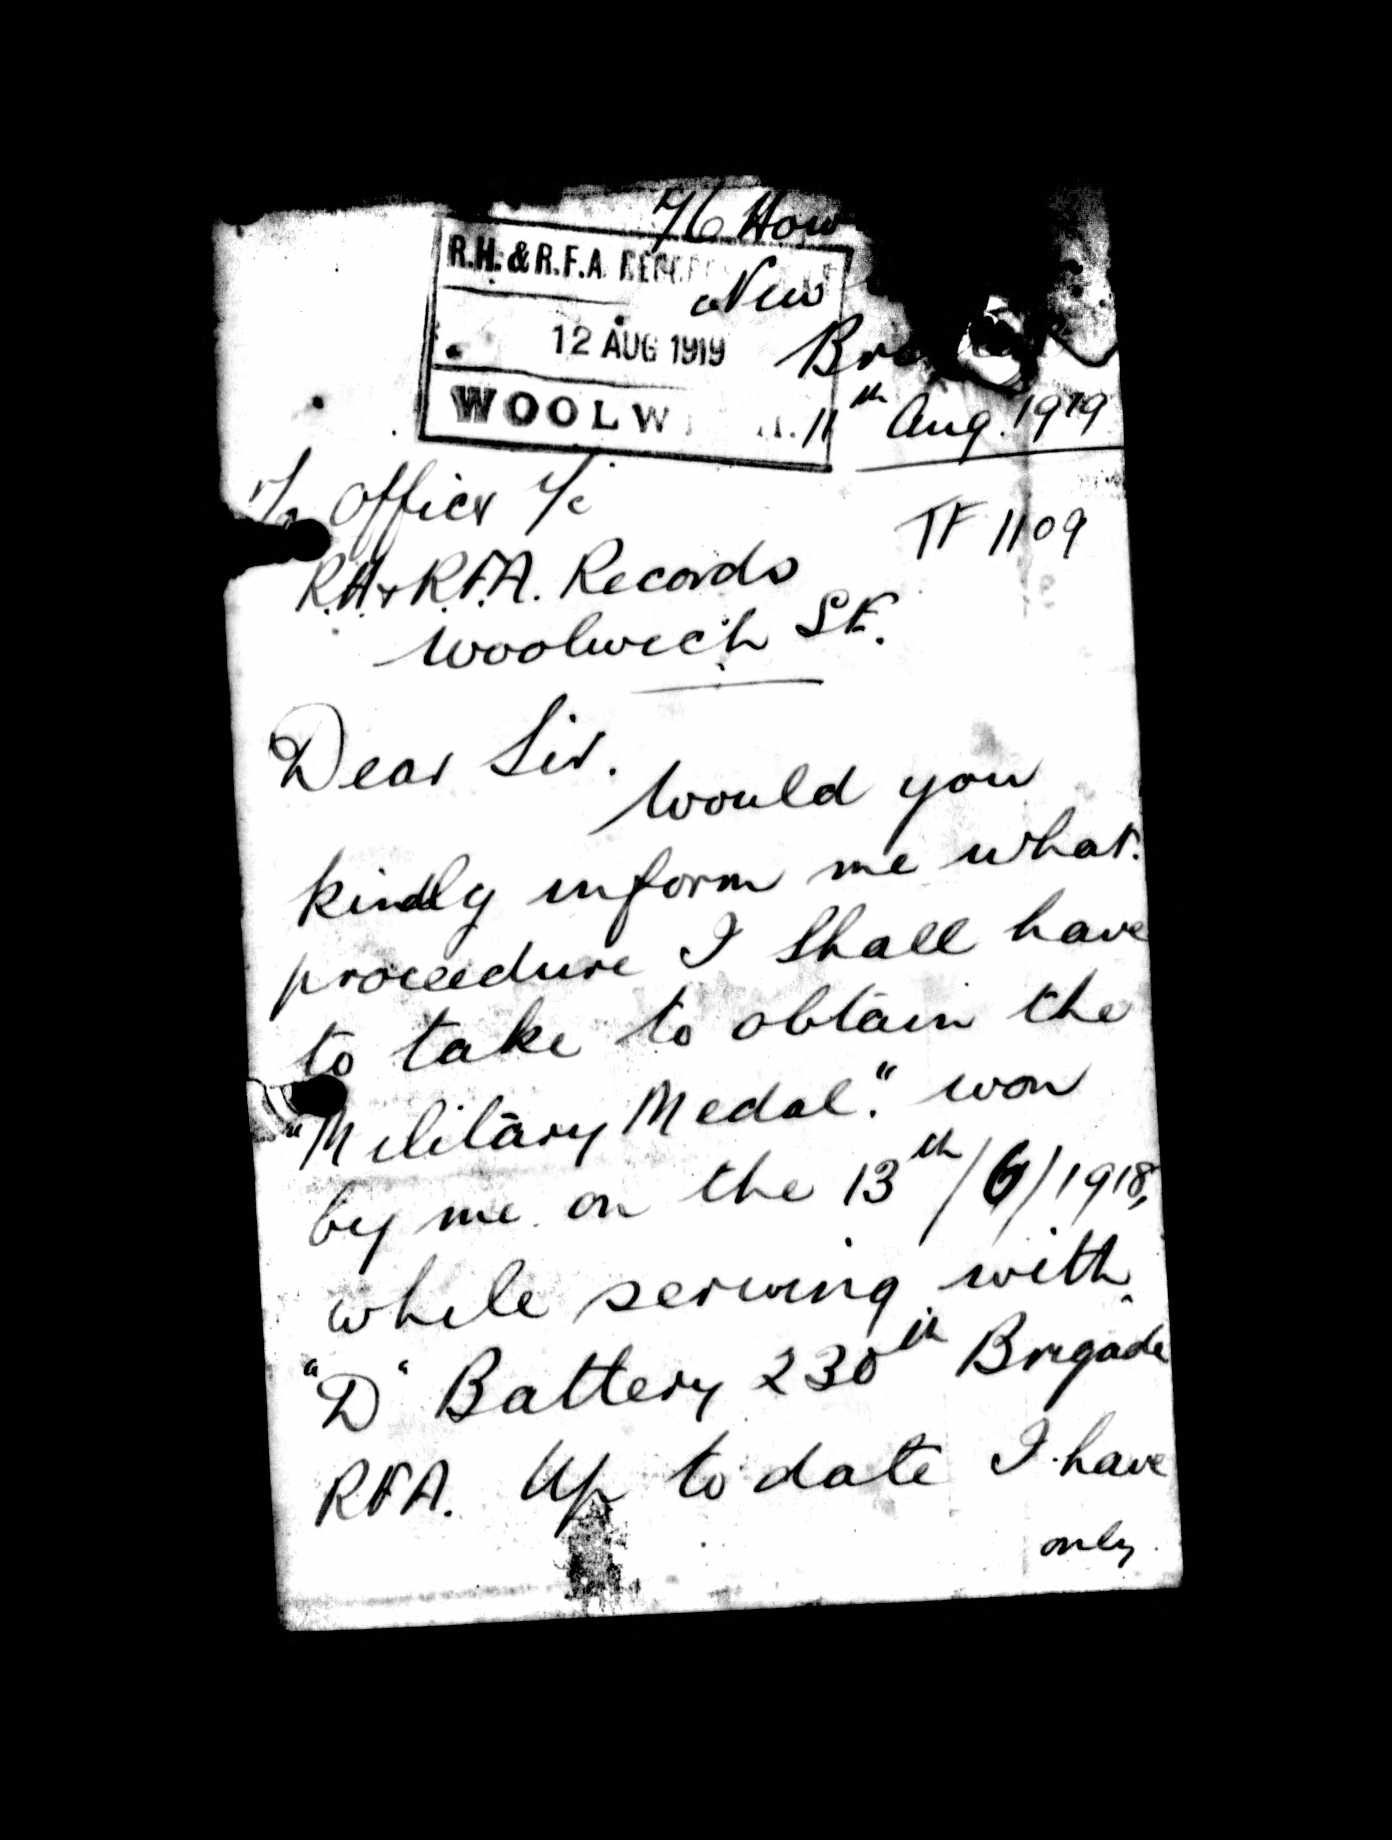 76 How
R.H. & R.F.A. RECORD
New
12 AUG 1919
Br
WOOLW H.
11th Aug. 1919
Officer i/c
TF 1109
R.H & R.F.A. Records
Woolwich S.E.
Dear Sir.
Would you
kindly inform me what
proceedure I shall have
to take to obtain the
"Military Medal". won
by me on the 13th/6/1918,
while serving with
"D" Battery 230th Brigade
RFA. Up to date I have
only